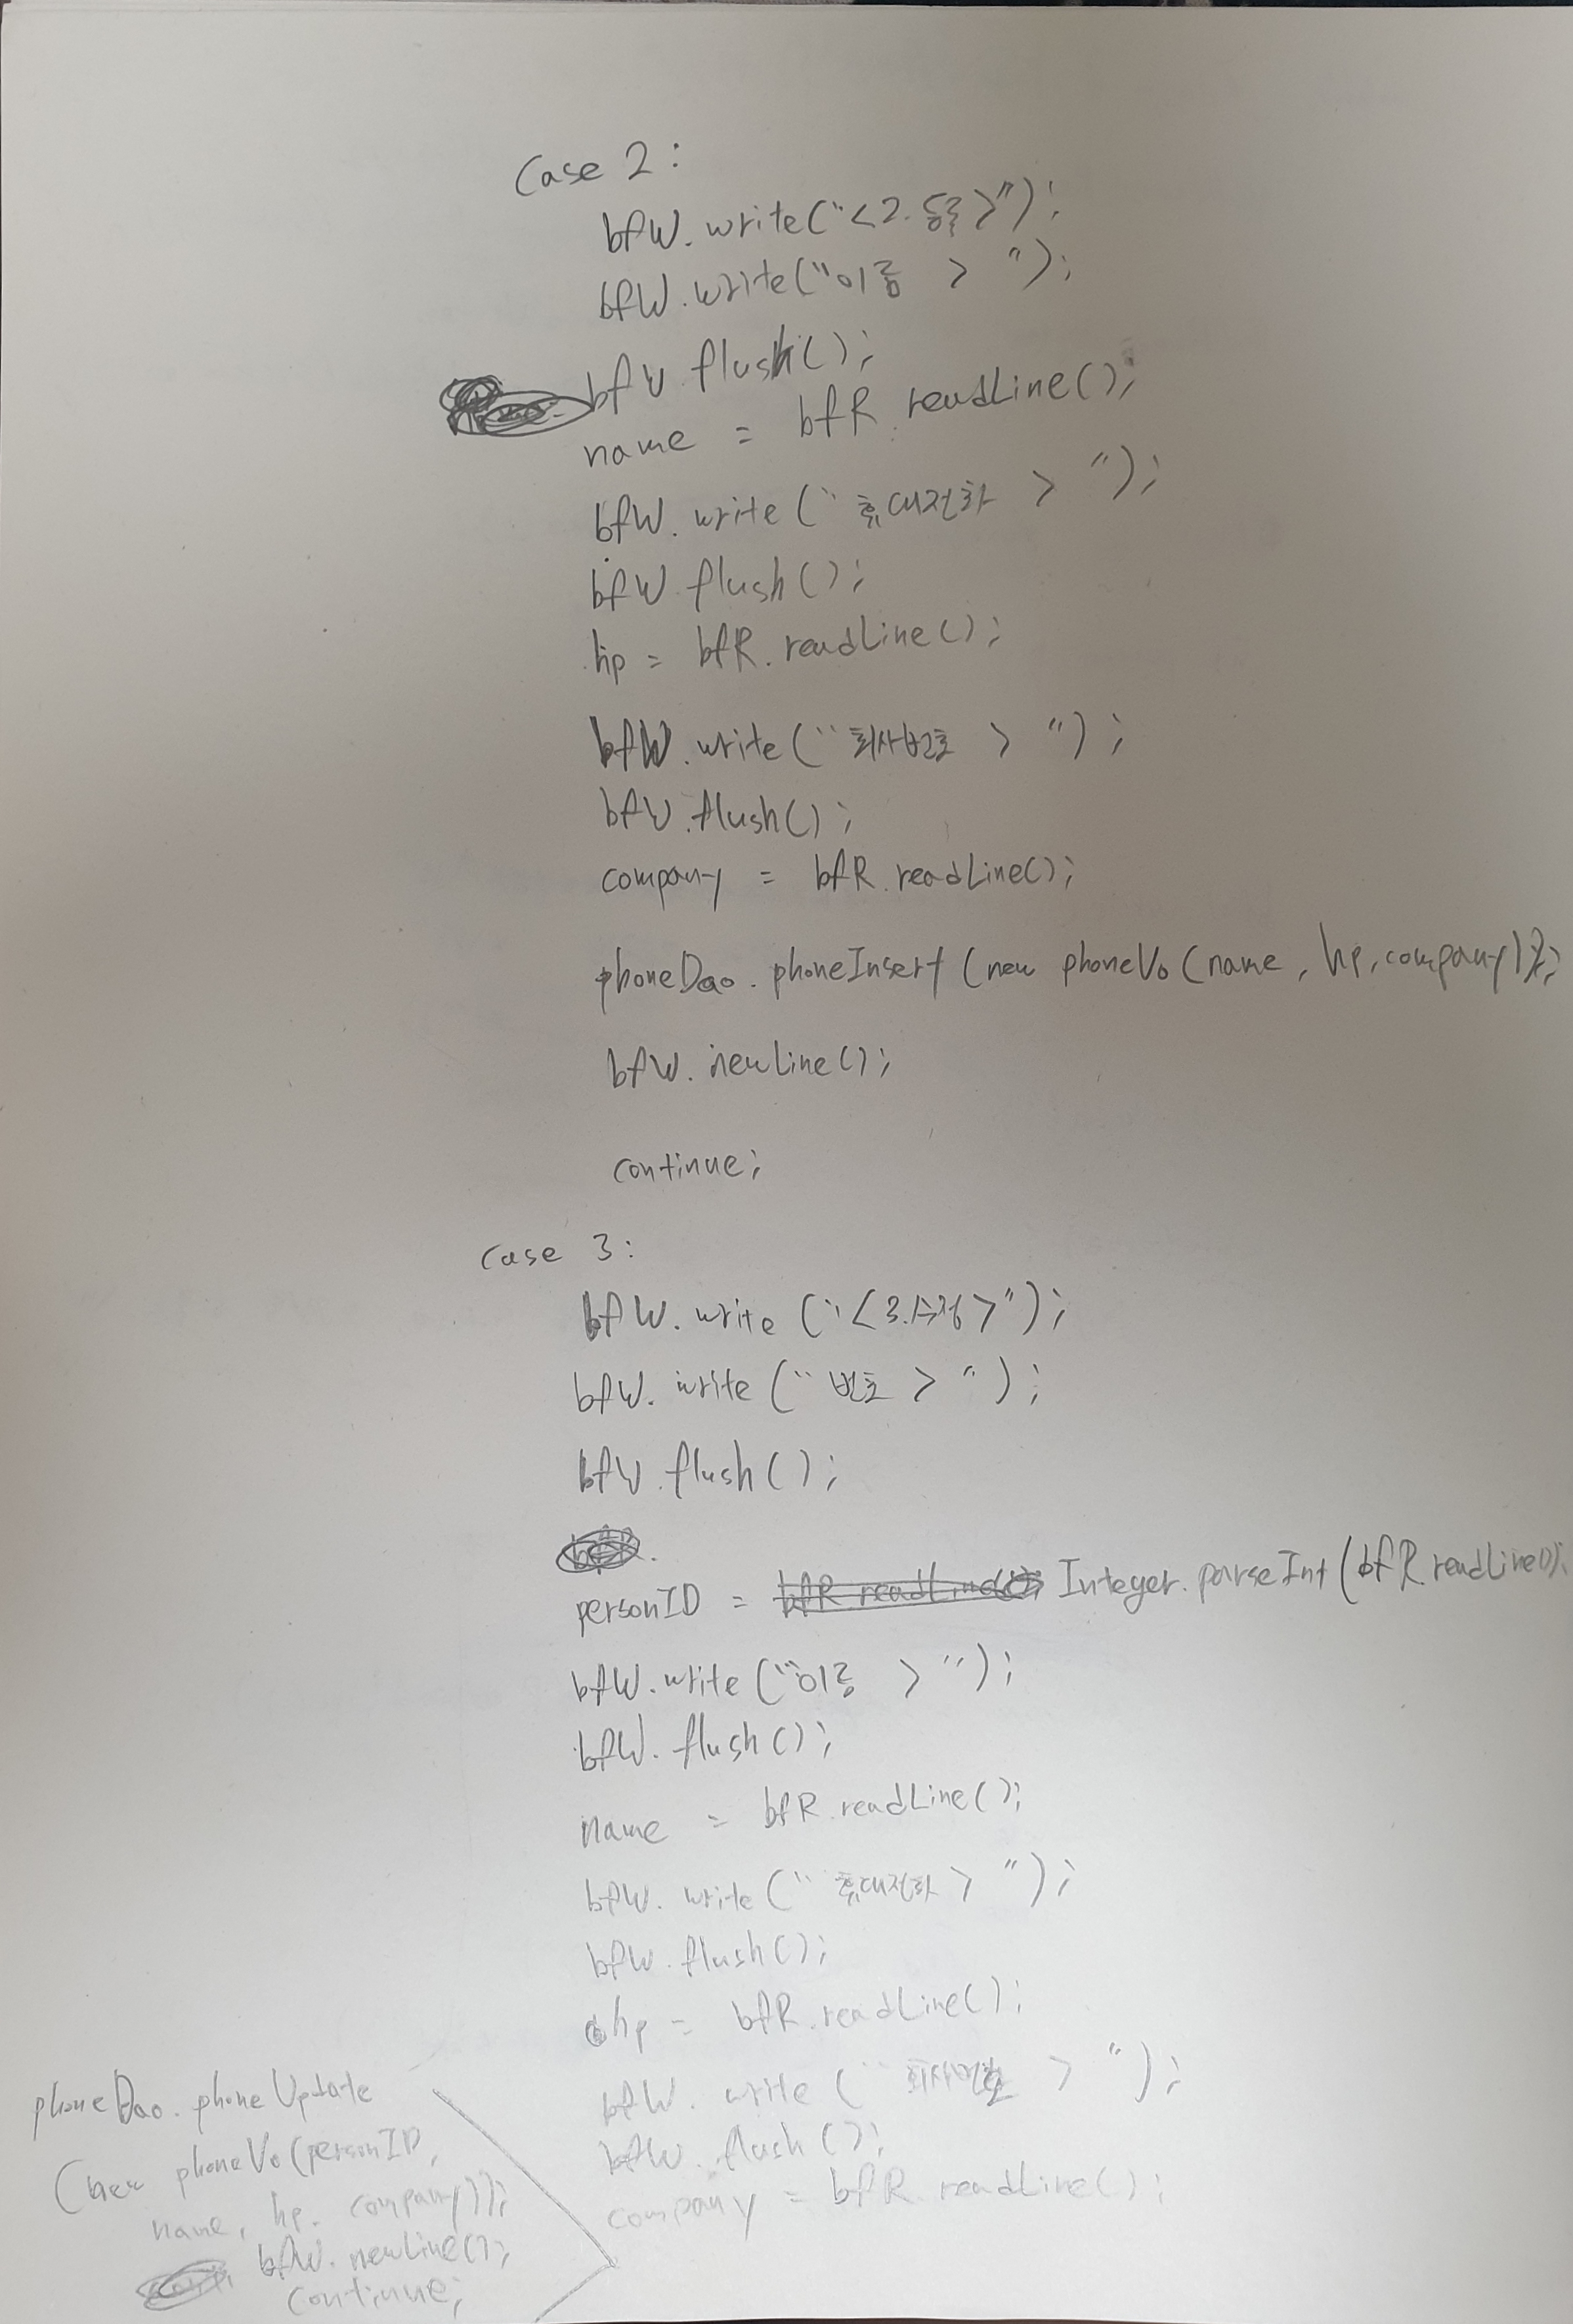 Case 2:
bfW.write("<2.등록>");
bfW.write("이름 > ");
bfW flush();
name = bfR.readLine();
bfW.write("휴대전화 > ");
bfW flush();
hp = bfR.readLine();
bfW.write("회사번호 > ");
bfW.flush();
company = bfR.readLine();
phoneDao.phoneInsert(new phoneVo(name, hp, company));
bfW.newLine();
continue;
Case 3:
bfW.write("<3.수정>");
bfW.write("번호 > ");
bfW.flush();
personID = bfR.readLine(); Integer.parseInt(bfR.readLine());
bfW.write("이름 > ");
bfW.flush();
name = bfR.readLine();
bfW.write("휴대전화 > ");
bfW.flush();
hp = bfR.readLine();
bfW.write("회사번호 > ");
bfW.flush();
company = bfR.readLine();
phoneDao.phoneUpdate
(new phoneVo(personID,
name, hp, company));
bfW.newLine();
continue;